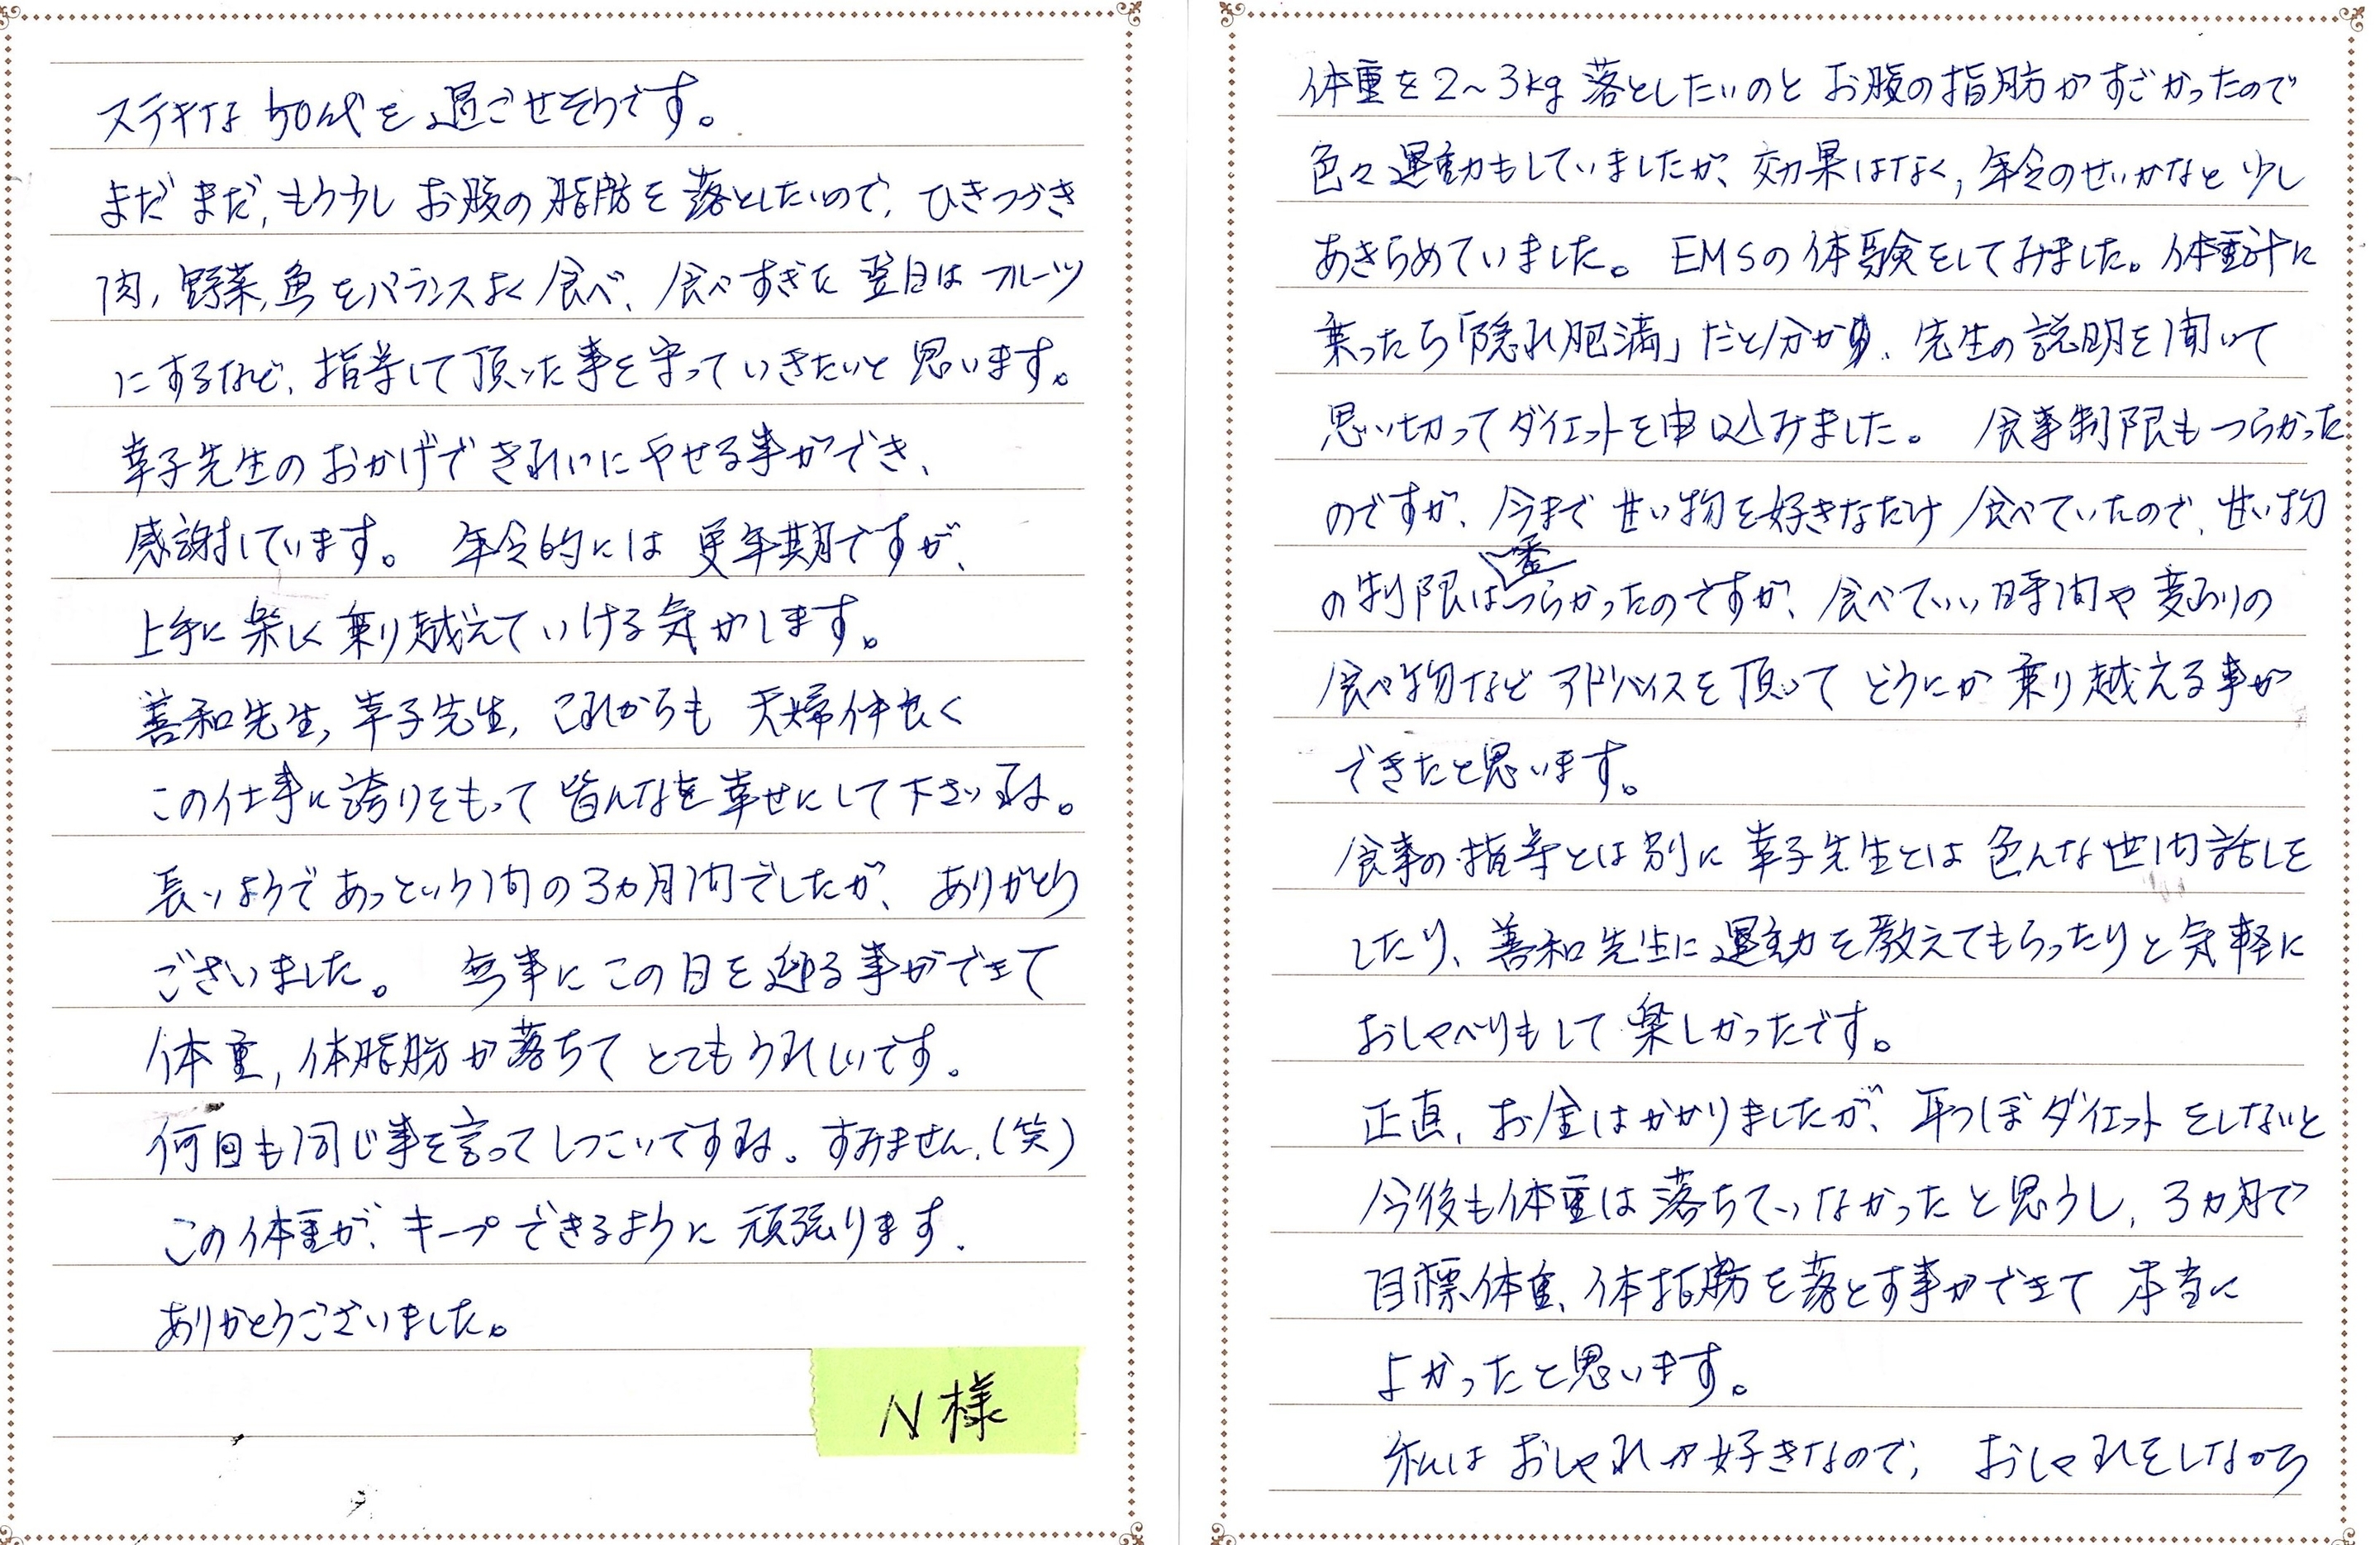 体重を2～3kg落としたいのとお腹の指肪がすごかったので
色々運動もしていましたが、効果はなく,年令のせいかなと少し
あきらめていました。EMSの体験をしてみました。体重計に
乗ったら「隠れ肥満」だと分かり、先生の説明を聞いて
思い切ってダイエットを申し込みました。食事制限もつらかった
のですが、今まで甘い物を好きなだけ食べていたので、甘い物
の制限は一番つらかったのですが、食べていい時間や変わりの
食べ物などアドバイスを頂いてどうにか乗り越える事が
できたと思います。
食事の指導とは別に幸子先生とは色んな世間話しを
したり、善和先生に運動を教えてもらったりと気軽に
おしゃべりもして楽しかったです。
正直,お金はかかりましたが、耳つぼダイエットをしないと
今後も体重は落ちていなかったと思うし,3ヵ月で
目標体重、体指肪を落とす事ができて本当に
よかったと思います。
私はおしゃれが好きなので,おしゃれをしながら
ステキな50代を過ごせそうです。
まだまだ,もう少しお腹の脂肪を落としたいので,ひきつづき
肉,野菜,魚をバランスよく食べ、食べすぎた翌日はフルーツ
にするなど、指導して頂いた事を守っていきたいと思います。
幸子先生のおかげできれいにやせる事ができ、
感謝しています。年令的には更年期ですが、
上手に楽しく乗り越えていける気がします。
善和先生,幸子先生,これからも夫婦仲良く
この仕事に誇りをもって皆んなを幸せにして下さいね。
長いようであっという間の3ヵ月間でしたが、ありがとう
ございました。無事にこの日を迎る事ができて
体重,体脂肪が落ちてとてもうれしいです。
何回も同じ事を言ってしつこいですね。すみません.(笑)
この体重が、キープできるように頑張ります.
ありがとうございました。
N様